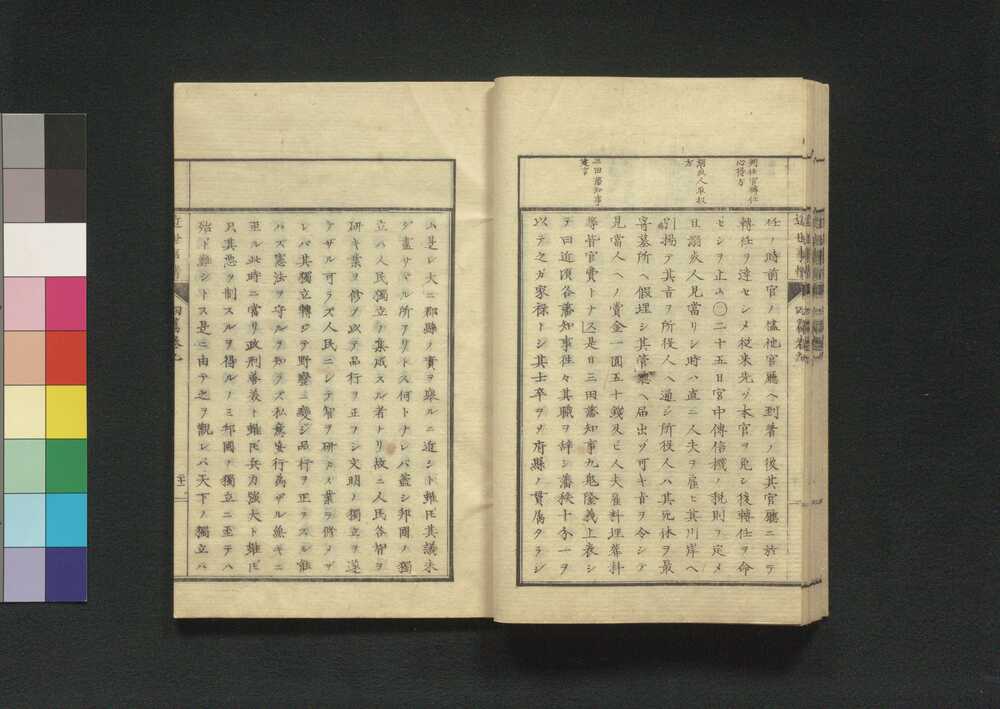 判任官轉任
心得方
溺死人取扱
方
三田藩知事
建言
任ノ時前官ノ儘他官廳ヘ到着ノ後其官廳ニ於テ
轉任ヲ達セシメ從来先ヅ本官ヲ免シ後轉任ヲ命
ゼシヲ止ム○二十五日宮中傳信機ノ規則ヲ定メ
且溺死人見當リシ時ハ直ニ人夫ヲ雇ヒ其川岸ヘ
引揚ゲ其旨ヲ所役人ヘ通シ所役人ハ其死体ヲ最
寄墓所ヘ假埋シ其管廳ヘ届出ヅ可キ旨ヲ令シ
見當人ヘノ賞金一圓五十錢及ヒ人夫雇料埋葬料
等皆官費トナス是日三田藩知事九鬼隆義上表シ
ヲ曰近頃各藩知事往々其職ヲ辞シ藩秩十分一ヲ
以テ之ガ家禄トシ其士卒ヲシヲ府縣ノ貫属タラシ
ム是レ大ニ郡縣ノ實ヲ擧ルニ近シト雖𪜈其議未
ダ盡サヾル所アリトス何トナレバ蓋シ邦國ノ獨
立ハ人民獨立ノ集成スル者ナリ故ニ人民各智ヲ
研キ業ヲ修メ以テ品行ヲ正フシ文明ノ獨立ヲ遂
ゲザル可ラズ人民ニシテ智ヲ研カズ業ヲ修メザ
レバ其獨立轉シテ野蠻ニ變シ品行ヲ正フスル能
ハズ憲法ヲ守ルヲ知ラズ私意妄行為ザル無キニ
至ル此時ニ當リ政刑善美ト雖𪜈兵力強大ト雖𪜈
只其悪ヲ制スルヲ得ルノミ邦國ノ獨立ニ至テハ
殆ド難シトス是ニ由テ之ヲ觀レバ天下ノ獨立ハ